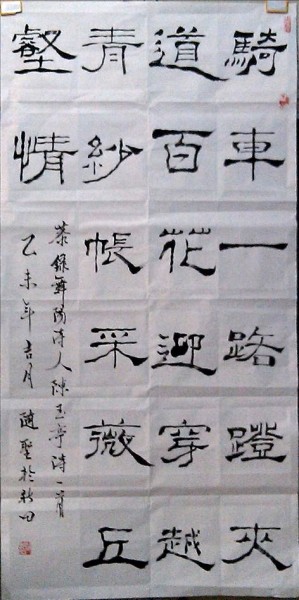 騎車一路蹬夾
道百花迎穿越
青紗帳采薇丘
壑情
恭錄舞陽詩人陳玉亭詩一首
乙未年吉月隨聖於